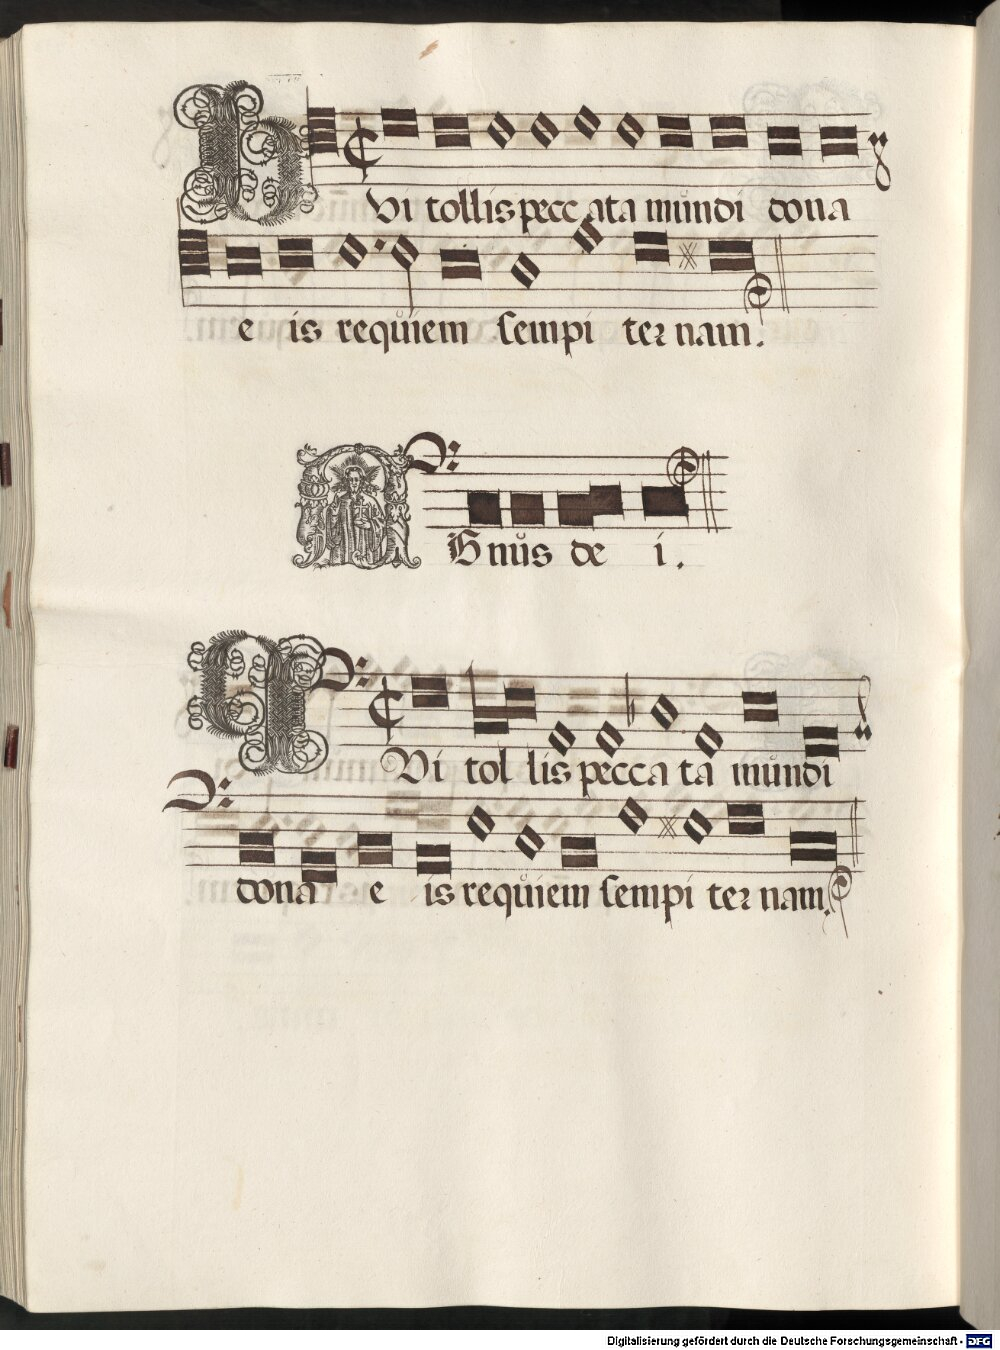 QVi tollis peccata mundi dona
e is requiem sempi ternam.
AGnus de i.
QVi tol lis pecca ta mundi
dona e is requiem sempi ternam.
Digitalisierung gefördert durch die Deutsche Forschungsgemeinschaft - DFG